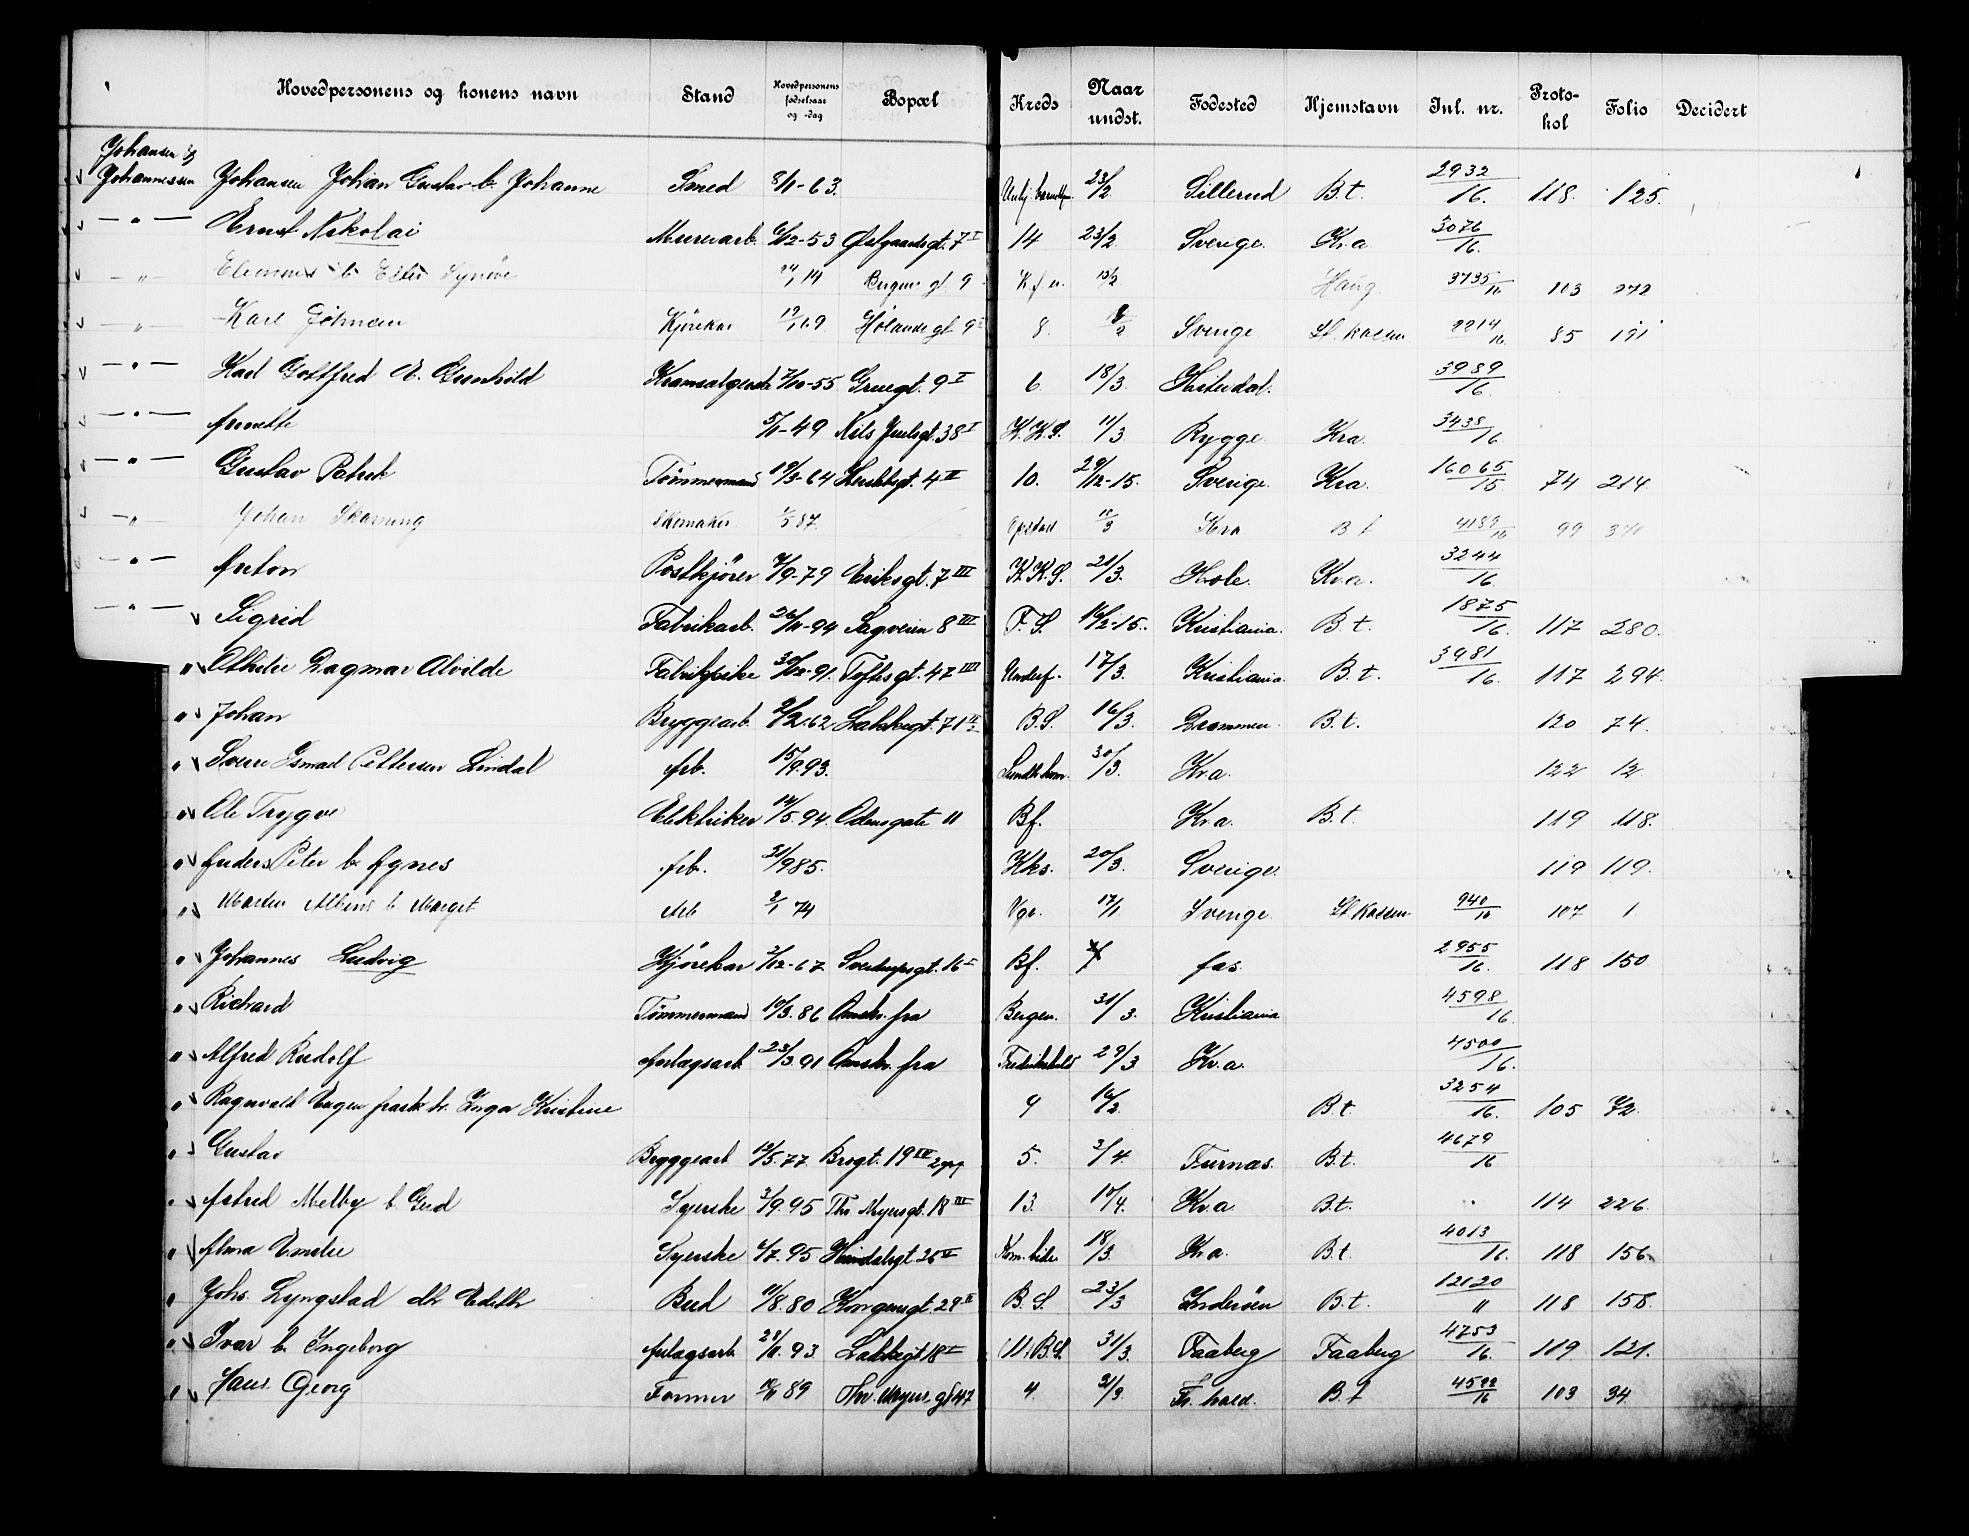 Hovedpersonens og konens navn Stand Hovedpersonens fødselsaar og -dag Bopæl Kreds Naar undst. Fødested Hjemstavn Inl. nr. Proto-kol Folio Decidert
Johansen og
Johannessen Johansen Johan Gustav b. Johanne Smed 8/1-63. 23/2 Sillerud B.t. 2932/16. 118. 125.
— " — Ernst Nikolai Murerarb. 6/12-53 Østgaardsgt. 7 I 14 23/2 Sverige. Kr.a 3076/16.
— " — b. Synøve 14 Bergens gt 9 K.f.u. 10/2 Haug 3735/16 113 272
— " — Karl Johnsen Kjørekar 12/1 69 Hølands gt 9 8. 8/2 Sverige St. kassen 2214/16 85 191
— " — Karl Gottfred E. Gunhild Kramsælgerske 7/10-55 Gruegt. 9 I 6 18/3. Hitterdal. 3989/16.
— " — Annette 5/1-49 Nils Juelsgt. 38 I K.K.S. 11/3 Rygge. Kra. 3438/16.
— " — Gustav Patrik Tømmermand 19/3-64 4 II 10. 29/12-15. Sverige. Kra. 16065/15 74 214
— " — Johan Skarning Skomaker 1/5 87. Opstad 10/3 Kra B t 4189/16 99 370
— " — Anton Postkjører 7/9-79 Eriksgt. 7 III K.K.S. 21/3. Hole. Kr.a. 3244/16.
— " — Sigrid Fabrikarb. 26/11-94 Sagveien 8 III F.S. 16/2-15. Kristiania. B.t. 1875/16. 117 280.
" Othelie Dagmar Alvilde Fabrikpike 30/12-91. Toftesgt. 47 III Undersf. 17/3. Kristiania B.t. 3981/16. 117 294.
" Johan Bryggearb. 2/2.62 Lakkegt. 71 B.S. 16/3. Drammen. B.t. 120 74.
" Sverre Ismael Pettersen Lindal Arb. 15/9.93. 30/3. Kr.a. 122 12.
" Ole Trygve Elektriker 14/5.94. Odensgate 11 Bf. Kr.a. B.t. 119 118.
" Anders Peter b. Agnes Arb. 21/9 85. Kks. 20/3. Sverige. 119 119.
" Martin Albins b Marget Arb 2/1 74 Vgr. 17/1 Sverige St kassen 940/16 107 1.
" Johannes Ludvig Kjørekar 3/12-67. Sverdrupsgt. 16 I Bf. fas. 2955/16. 118 150
" Richard Tømmermand 10/3.86 Omskr. fra Bergen. 31/3. Kristiania 4598/16.
" Alfred Rudolf Anlægsarb. 23/3.91 Omskr. fra Fredrikshald 29/3 Kr.a. 4500/16.
" Ragnvald Eugen frask. h. Inga Kristine 9 16/2. B.t. 3254/16. 105 72.
" Gustav Bryggearb 10/5.77. Brogt. 19 IV 2 opg 5. 3/4. Furnæs. B.t. 4679/16
" Astrid Melby b Gerd Syerske 3/9.95 Thv Myersgt. 18 III 13. 10/4. Kr.a. B.t. 114 226.
" Alma Emelie Syerske 6/7.95 25 II 18/3. Kr.a. B.t. 4013/16. 118 156.
" Johs. Lyngstad Edith Bud 11/8.80 Kongensgt. 29 II B.S. 23/3 Inderøen B.t. 12120/" 118 158.
" Ivar b. Ingeborg Anlægsarb. 28/11.93 Lakkegt 18 I U.B.S. 31/3. Faaberg Faaberg 4753/16. 119 121.
" Hans Georg Former 12/11 89 Thv. Meyers gt 47 4. 21/3. Fr. hald. B.t 4522/16 103 34.